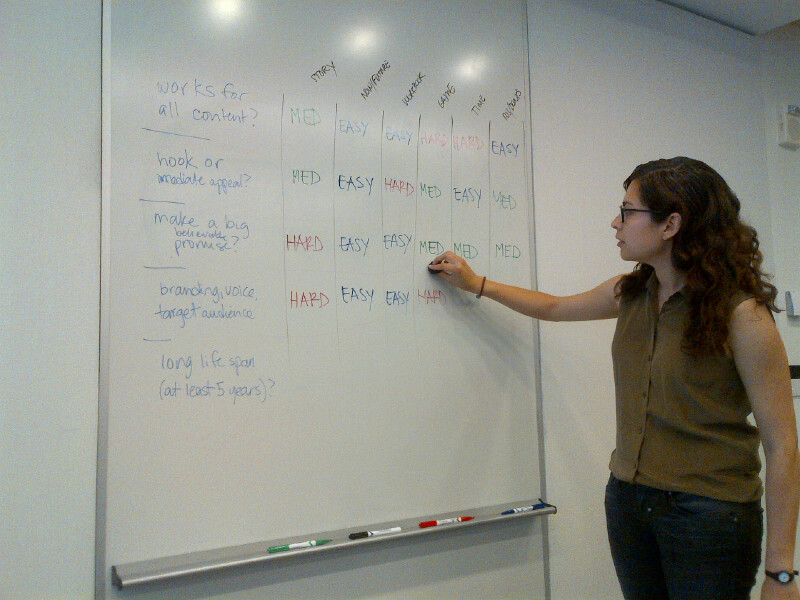 STORY NOW/FUTURE GAME TIME
works for
all content?
MED EASY EASY HARD HARD EASY
hook or
immediate appeal?
MED EASY HARD MED EASY MED
make a big
believable
promise?
HARD EASY EASY MED MED MED
branding, voice,
target audience
HARD EASY EASY HARD
long life span
(at least 5 years)?